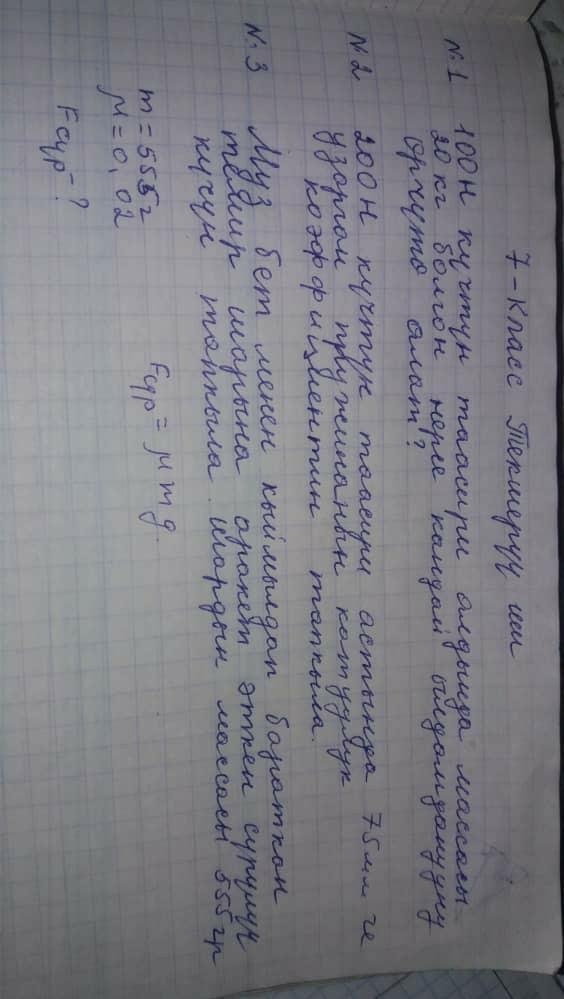 7-Класс Текшерүү иш
№1 100 Н күчтүн таасири алдында массасы
20 кг болгон нерсе кандай ылдамданууну
№2 200 Н күчтүн таасири астында 75 мм ге
узарган пружинанын катуулук
коэффициентин тапкыла.
№3 Муз бет менен кыймылдап бараткан
темир шарына аракет эткен сүрүлүү
күчүн тапкыла. Шардын массасы 555 гр
m = 555 г
Fсүр = μmg
μ = 0,02
Fсүр - ?